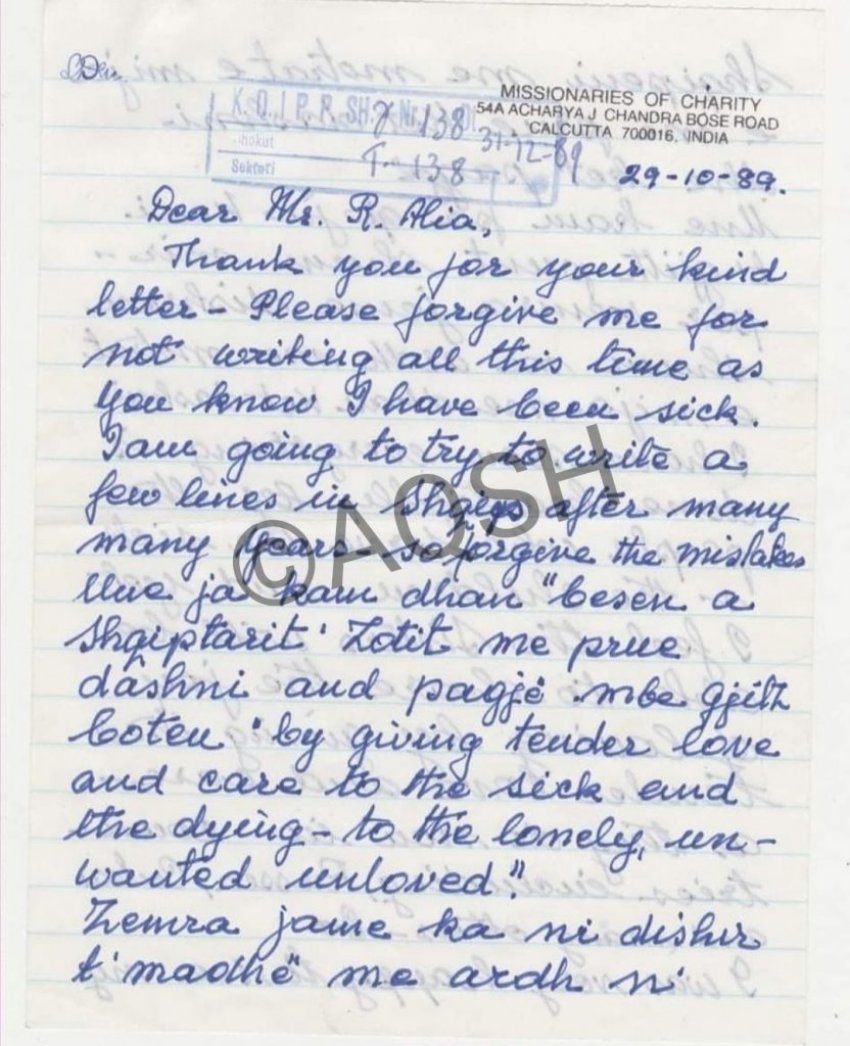 MISSIONARIES OF CHARITY
54A ACHARYA J CHANDRA BOSE ROAD
CALCUTTA 700016, INDIA
K.Q.I P.R.SH. Nr. 138
31-12-89
Sektori T- 138
29-10-89.
Dear Mr. R. Alia,
Thank you for your kind
letter – Please forgive me for
not writing all this time as
you know I have been sick.
I am going to try to write a
few lines in Shqips after many
many years – so forgive the mistakes
Une ja kam dhan "besen a
Shqiptarit' Zotit me prue
dashni and pagjë mbe gjith
boten " by giving tender love
and care to the sick and
the dying – to the lonely, un-
wanted unloved".
Zemra jame ka ni dishir
t'madhë me ardh ni
©AQSH